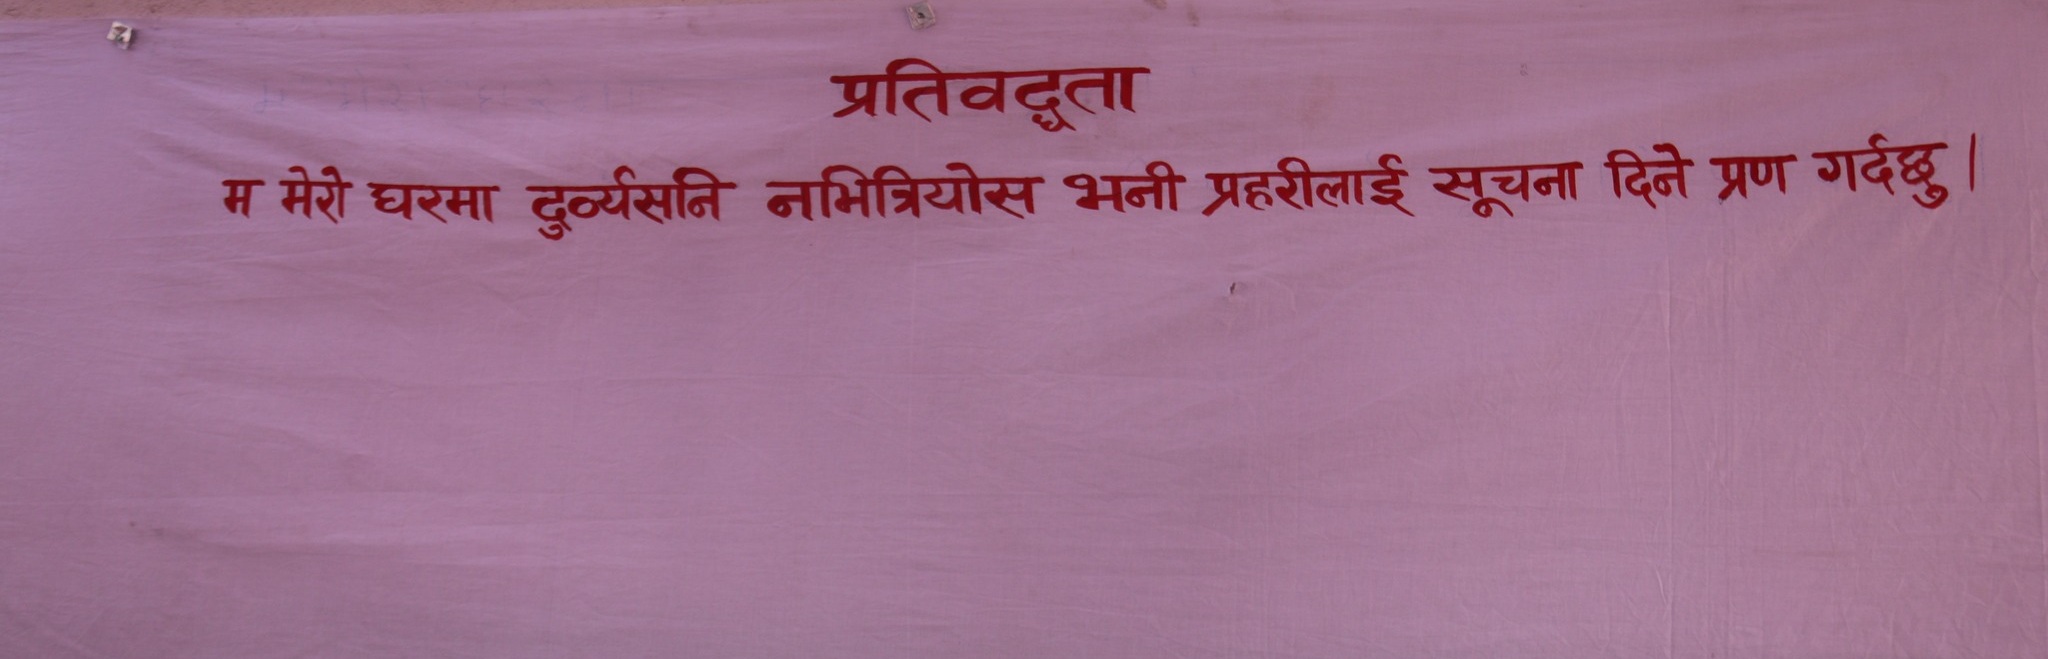 प्रतिवद्धता
म मेरो घरमा दुर्व्यसनि नभित्रियोस भनी प्रहरीलाई सूचना दिने प्रण गर्दछु ।